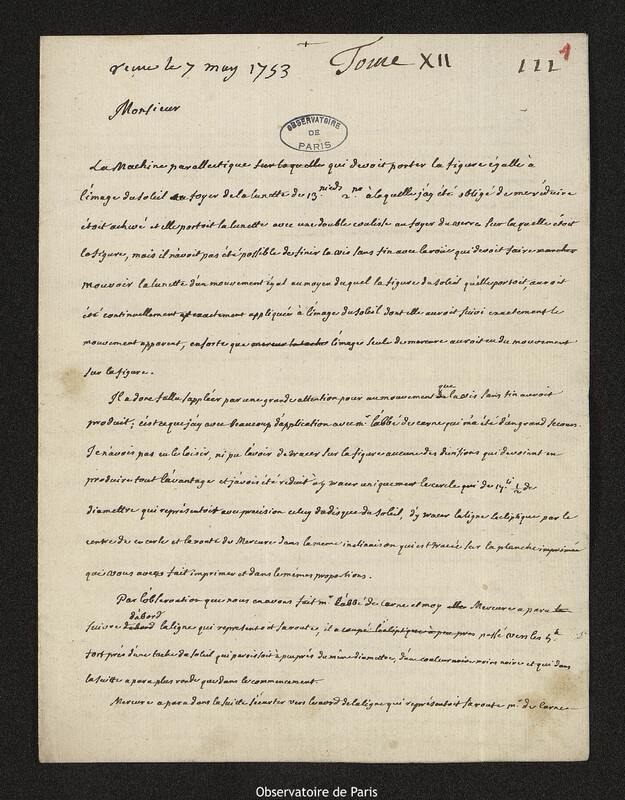 reçue le 7 may 1753 Tome XII 111 1
Monsieur
OBSERVATOIRE
DE
PARIS
La Machine parallectique sur laquelle qui devoit porter la figure égalle à
l'image du soleil au foyer de la lunette de 13 pieds 2 po à laquelle j'ay été obligé de me réduire
étoit achevé et elle portoit la lunette avec une double coulisse au foyer du verre sur laquelle étoit
la figure, mais il n'avoit pas été possible de finir la vis sans fin avec la roüe qui devoit faire marcher
mouvoir la lunette d'un mouvement égal au moyen duquel la figure du soleil qu'elle portoit, auroit
été continuellement et exactement appliquée à l'image du soleil dont elle auroit suivi exactement le
mouvement apparent, ensorte que mercur la tache l'image seule de mercure auroit eu du mouvement
sur la figure.
Il a donc fallu suppléer par une grande attention pour au mouvement que la vis sans fin auroit
produit; c'est ce que j'ay avec beaucoup d'application avec mr l'abbé de carne qui m'a été d'un grand secours.
Je n'avois pas eu le loisir, ni pu l'avoir de tracer sur la figure aucune des divisions qui devoient en
produire tout l'avantage et j'avois été réduit à y tracer uniquement le cercle qui de 17 li ½ de
diamettre qui représentoit avec précision celuy du disque du soleil, d'y tracer la ligne l'ecliptique par le
centre de ce cercle et la route de Mercure dans la meme inclinaison qui est tracée sur la planche imprimée
que vous avez fait imprimer et dans les mêmes proportions.
Par l'observation que nous en avons fait mr l'abbé de Carne et moy Mercure a paru
d'abord
suivre d'abord la ligne qui représentoit sa route, il a coupé l'ecliptique à peu près passé vers les 5h
fort près d'une tache du soleil qui paroissoit à peu près du même diamettre, d'une couleur noire moins noire et qui dans
la suitte a paru plus ronde que dans le commencement.
Mercure a paru dans la suitte s'écarter vers le nord de la ligne qui représentoit sa route mr de Carne
Observatoire de Paris